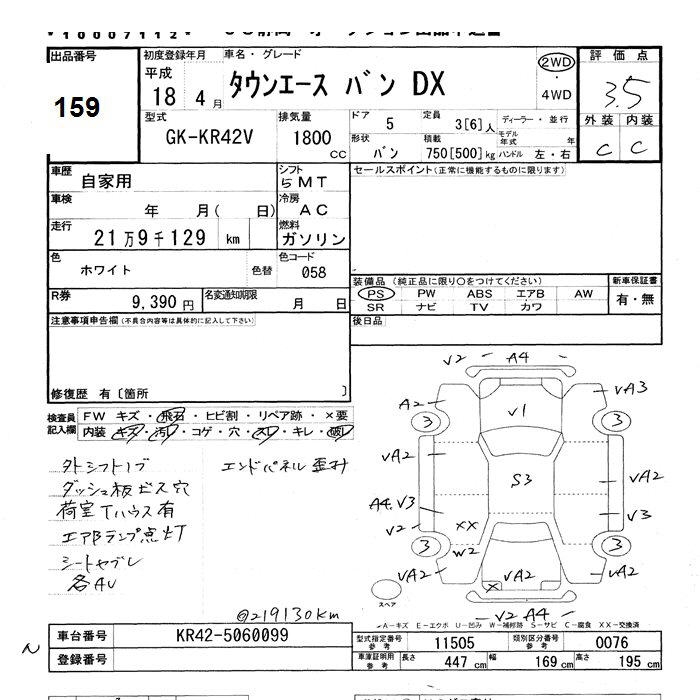 10007112
出品番号
159
初度登録年月
平成
18 4 月
車名・グレード
タウンエース バン DX
2WD
・
4WD
評価点
3.5
外装 内装
C C
型式
GK-KR42V
排気量
1800
CC
ドア 5
定員 3[6]人
ディーラー・並行
形状 バン
積載 750[500]kg
モデル年式 年
ハンドル 左・右
車歴
自家用
シフト
5MT
セールスポイント(正常に機能するものに限ります)
車検
年 月( 日)
冷房
AC
走行
21万9千129 km
燃料
ガソリン
色
ホワイト
色替
色コード
058
装備品 (純正品に限り○をつけてください)
PS PW ABS エアB AW
SR ナビ TV カワ
新車保証書
有・無
R券
9,390円
名変通知期限
月 日
後日品
注意事項申告欄(不具合内容等は具体的に記入して下さい)
修復歴 有〔箇所 〕
検査員
記入欄
FW キズ・飛石・ヒビ割・リペア跡・×要
内装・キズ・汚レ・コゲ・穴・スレ・キレ・破レ
外シフトノブ
ダッシュ板ビス穴
荷室Tハウス有
エアBランプ点灯
シートヤブレ
各AU
エンドパネル歪み
@219130km
V2 A4
A2 V1 VA3
3 3
VA2 S3 VA2
A4.V3 V3
V2 XX
3 W2 3
VA2 X VA2 VA2
スペア
V2 A4
A-キズ E-エクボ U-凹み W-補修跡 S-サビ C-腐食 XX-交換済
車台番号
KR42-5060099
登録番号
型式指定番号
参考
11505
類別区分番号
参考
0076
車庫証明用
参考
長さ 447 cm
幅 169 cm
高さ 195 cm